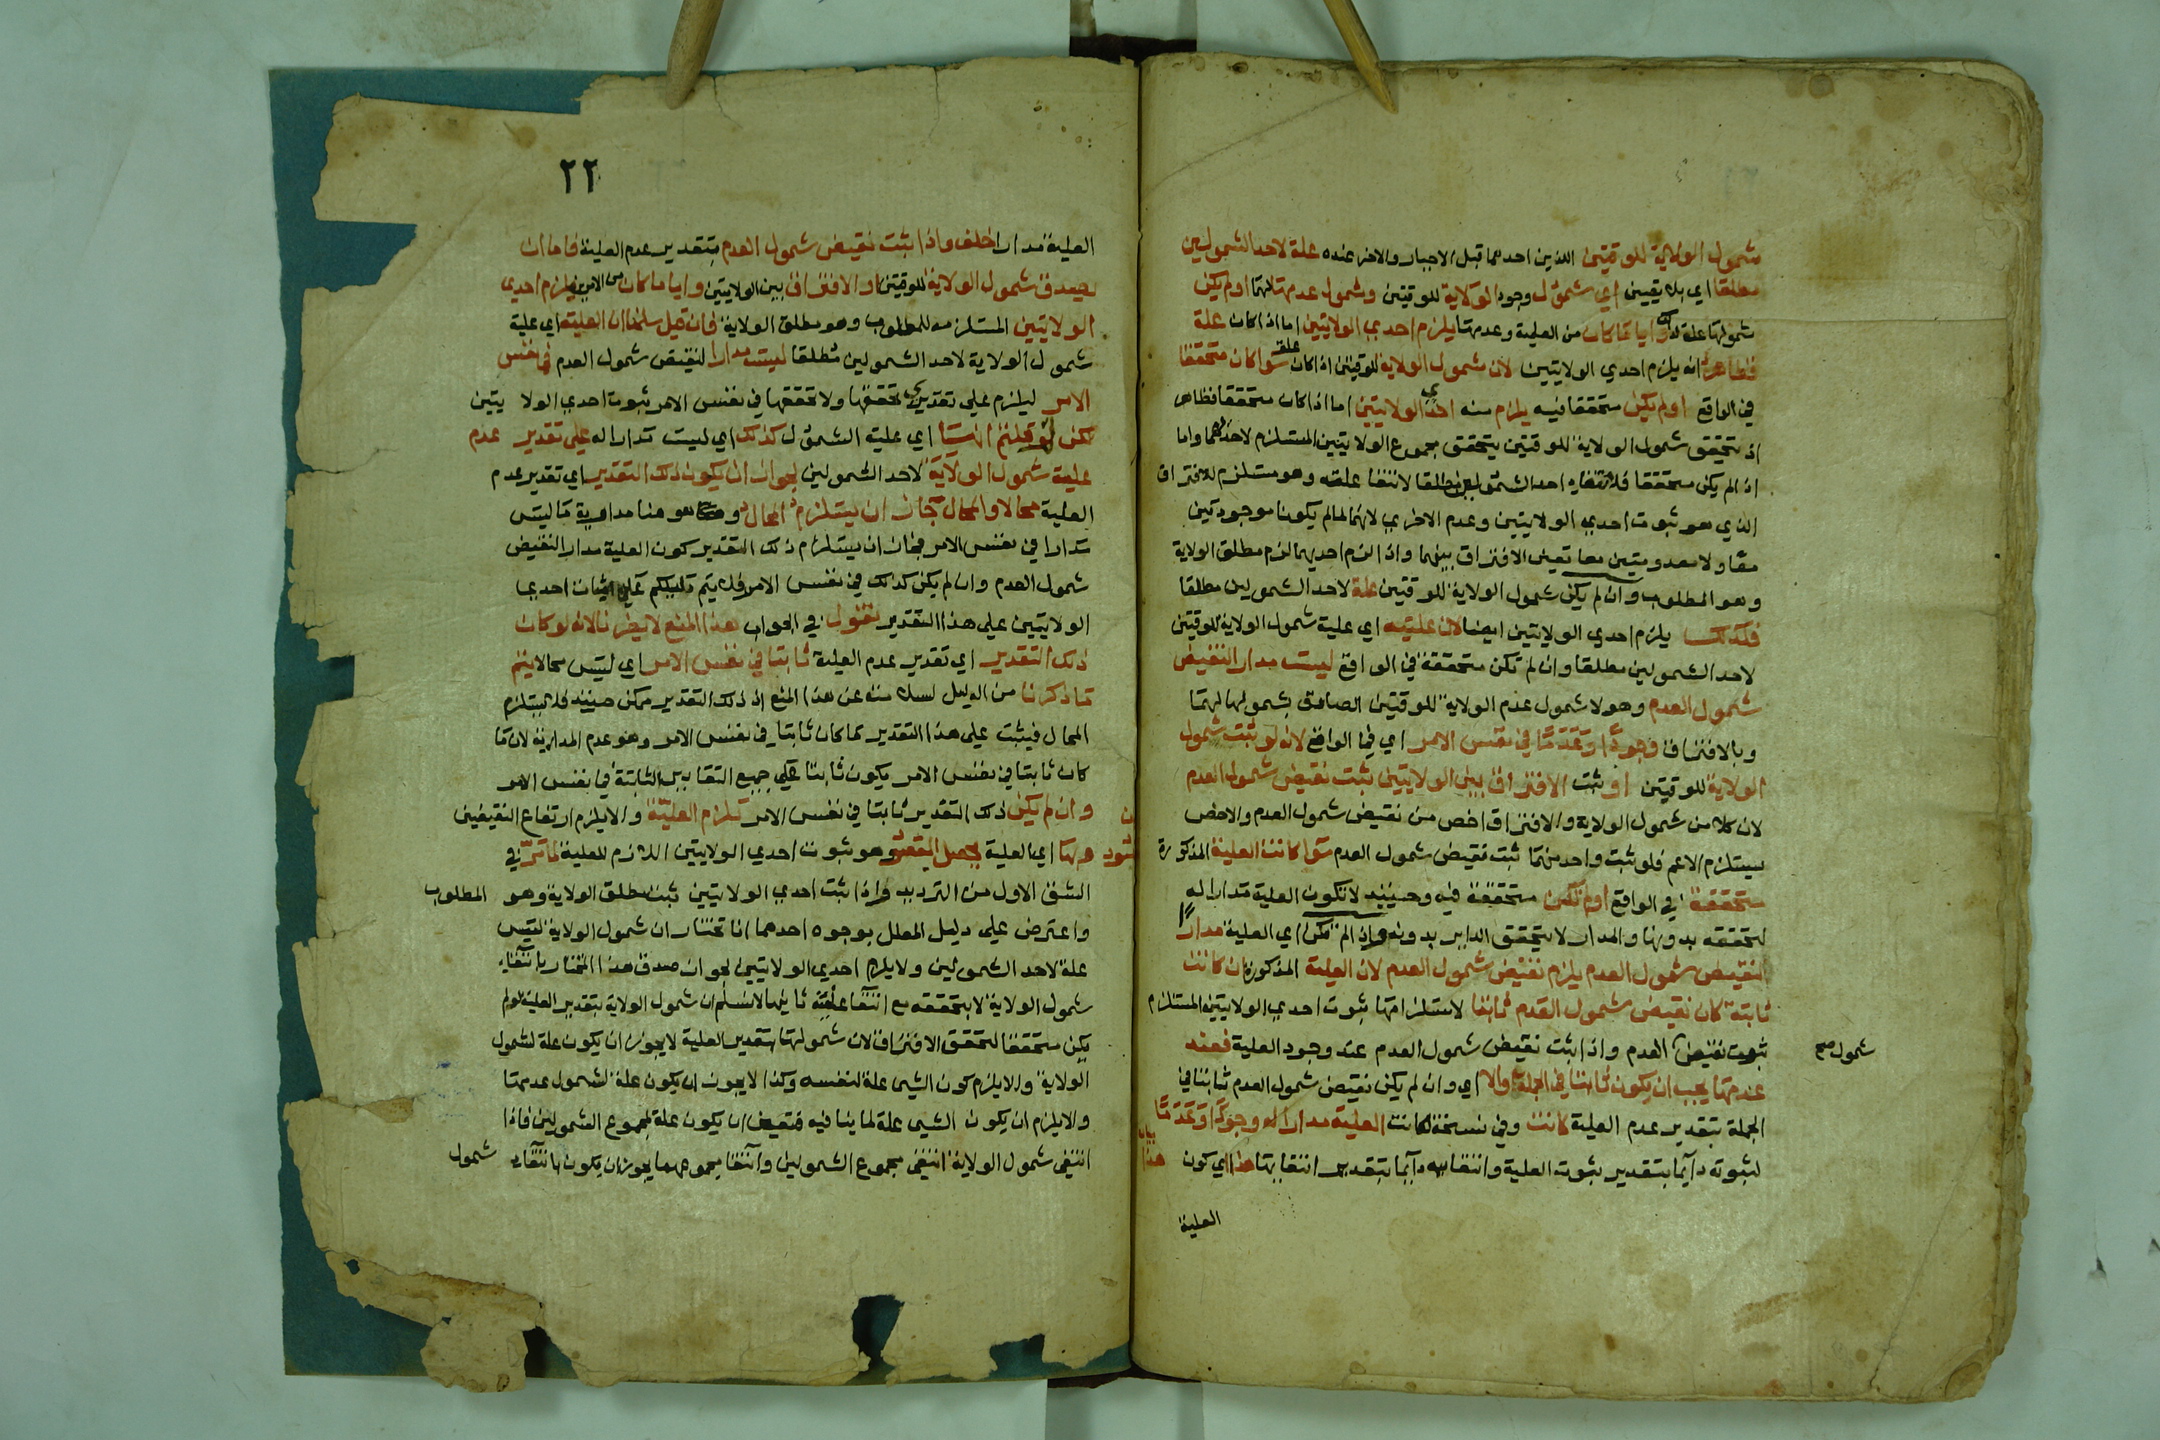 شمول الولاية للوقتين اللذين احدهما قبل الاجبار والاخر عنده علة لاحد الشمولين
مطلقا اي بلا تعيين اي شمول وجود الولاية للوقتين وشمول عدمها لهما او لم يكن
شمولها علة لذلك وايا ما كان من العلية وعدمها يلزم احدي الولايتين اما اذا كان علة
فظاهر انه يلزم احدي الولايتين لان شمول الولاية للوقتين اذا كان علة سوا كان متحققا
في الواقع او لم يكن متحققا فيه يلزم منه احدي الولايتين اما اذا كان متحققا فظاهر
اذ بتحقق شمول الولاية للوقتين يتحقق مجموع الولايتين المستلزم لاحدهما واما
اذا لم يكن متحققا فلانتفاء احد الشمولين مطلقا لانتفا علته وهو مستلزم للافتراق
الذي هو ثبوت احدي الولايتين وعدم الاخري لانهما لما لم يكونا موجودتين
معا ولا معدومتين معا تعين الافتراق بينهما واذا لزم احديهما لزم مطلق الولاية
وهو المطلوب وان لم يكن شمول الولاية للوقتين علة لاحد الشمولين مطلقا
فكذلك يلزم احدي الولايتين ايضا لان عليته اي علية شمول الولاية للوقتين
لاحد الشمولين مطلقا وان لم تكن متحققة في الواقع ليست مدارا لنقيض
شمول العدم وهو لا شمول عدم الولاية للوقتين الصادق بشمولها لهما
وبالافتراق وجودا وعدما في نفس الامر اي فيما الواقع لانه لو ثبت شمول
الولاية للوقتين او ثبت الافتراق بين الولايتين ثبت نقيض شمول العدم
لان كلا من شمول الولاية والافتراق اخص من نقيض شمول العدم والاخص
يستلزم الاعم فلو ثبت واحد منهما ثبت نقيض شمول العدم سوا كانت العلية المذكورة
متحققة في الواقع او لم تكن متحققة فيه وحينيذ لا تكون العلية مدارا له
لتحققه بدونها والمدار لا يتحقق الداير بدونه واذا لم تكن اي العلية مدارا
لنقيض شمول العدم يلزم نقيض شمول العدم لان العلية المذكورة ان كانت
ثابتة كان نقيض شمول العدم ثابتا لاستلزامها ثبوت احدي الولايتين المستلزم
ثبوت نقيض العدم واذا ثبت نقيض شمول العدم عند وجود العلية فعند
شمول صح
عدمها يجب ان يكون ثابتا في الجملة والا اي وان لم يكن نقيض شمول العدم ثابتا في
الجملة بتقدير عدم العلية كانت وفي نسخة لكانت العلية مدارا له وجودا وعدما
لثبوته دايما بتقدير ثبوت العلية وانتفايه دايما بتقدير انتفايها هذا اي كون
بيان هذا
العلية
٢٢
العلية مدارا خلف واذا ثبت نقيض شمول العدم بتقدير عدم العلية فاما ان
يصدق شمول الولاية للوقتين او الافتراق بين الولايتين وايا ما كان من الامرين يلزم احدي
الولايتين المستلزمه للمطلوب وهو مطلق الولاية فان قيل سلمنا ان العلية اي علية
شمول الولاية لاحد الشمولين مطلقا ليست مدارا لنقيض شمول العدم في نفس
الامر ليلزم علي تقديري تحققها ولا تحققها في نفس الامر ثبوت احدي الولايتين
لكن لم قلتم انها اي علية الشمول كذلك اي ليست مدارا له علي تقدير عدم
علية شمول الولاية لاحد الشمولين لجواز ان يكون ذلك التقدير اي تقدير عدم
العلية محالا والمحال جاز ان يستلزم المحال وهو هنا مدارية ما ليس
مدارا في نفس الامر فجاز ان يستلزم ذلك التقدير كون العلية مدارا لنقيض
شمول العدم وان لم يكن كذلك في نفس الامر فلا يتم دليلكم علي اثبات احدي
الولايتين علي هذا التقدير نقول في الجواب هذا المنع لا يضرنا لانه لو كان
ذلك التقدير اي تقدير عدم العلية ثابتا في نفس الامر اي ليس محالا يتم
ما ذكرنا من الدليل لسلامته عن هذا المنع اذ ذلك التقدير ممكن حينيذ فلا يستلزم
المحال فيثبت علي هذا التقدير ما كان ثابتا في نفس الامر وهو عدم المدارية لان ما
كان ثابتا في نفس الامر يكون ثابتا علي جميع التقادير الثابتة في نفس الامر
وان لم يكن ذلك التقدير ثابتا في نفس الامر تلزم العلية والا يلزم ارتفاع النقيضين
وبها اي العلية يحصل المقصود هو ثبوت احدي الولايتين اللازم للعلية لما مر في
الشق الاول من الترديد واذا ثبت احدي الولايتين ثبت مطلق الولاية وهو المطلوب
واعترض علي دليل المعلل بوجوه احدهما انا نختار ان شمول الولاية ليس
علة لاحد الشمولين ولا يلزم احدي الولايتين لجواز صدق هذا المختار بانتفاء
شمول الولاية لا بتحققه مع انتفا عليته ثانيها لا نسلم ان شمول الولاية بتقدير العلية لو لم
يكن متحققا لتحقق الافتراق لان شمولها بتقدير العلية لا يجوز ان يكون علة لشمول
الولاية والا يلزم كون الشي علة لنفسه وكذا لا يجوز ان يكون علة لشمول عدمها
والا يلزم ان يكون الشي علة لما ينافيه فتعين ان يكون علة لمجموع الشمولين فاذا
انتفي شمول الولاية انتفي مجموع الشمولين وانتفا مجموعهما يجوز ان يكون بانتفاء
شمول